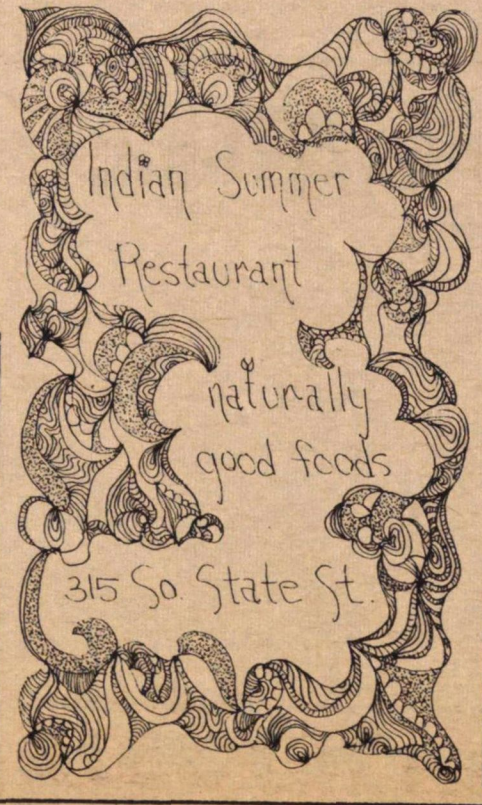 Indian Summer
Restaurant
naturally
good foods
315 So. State St.